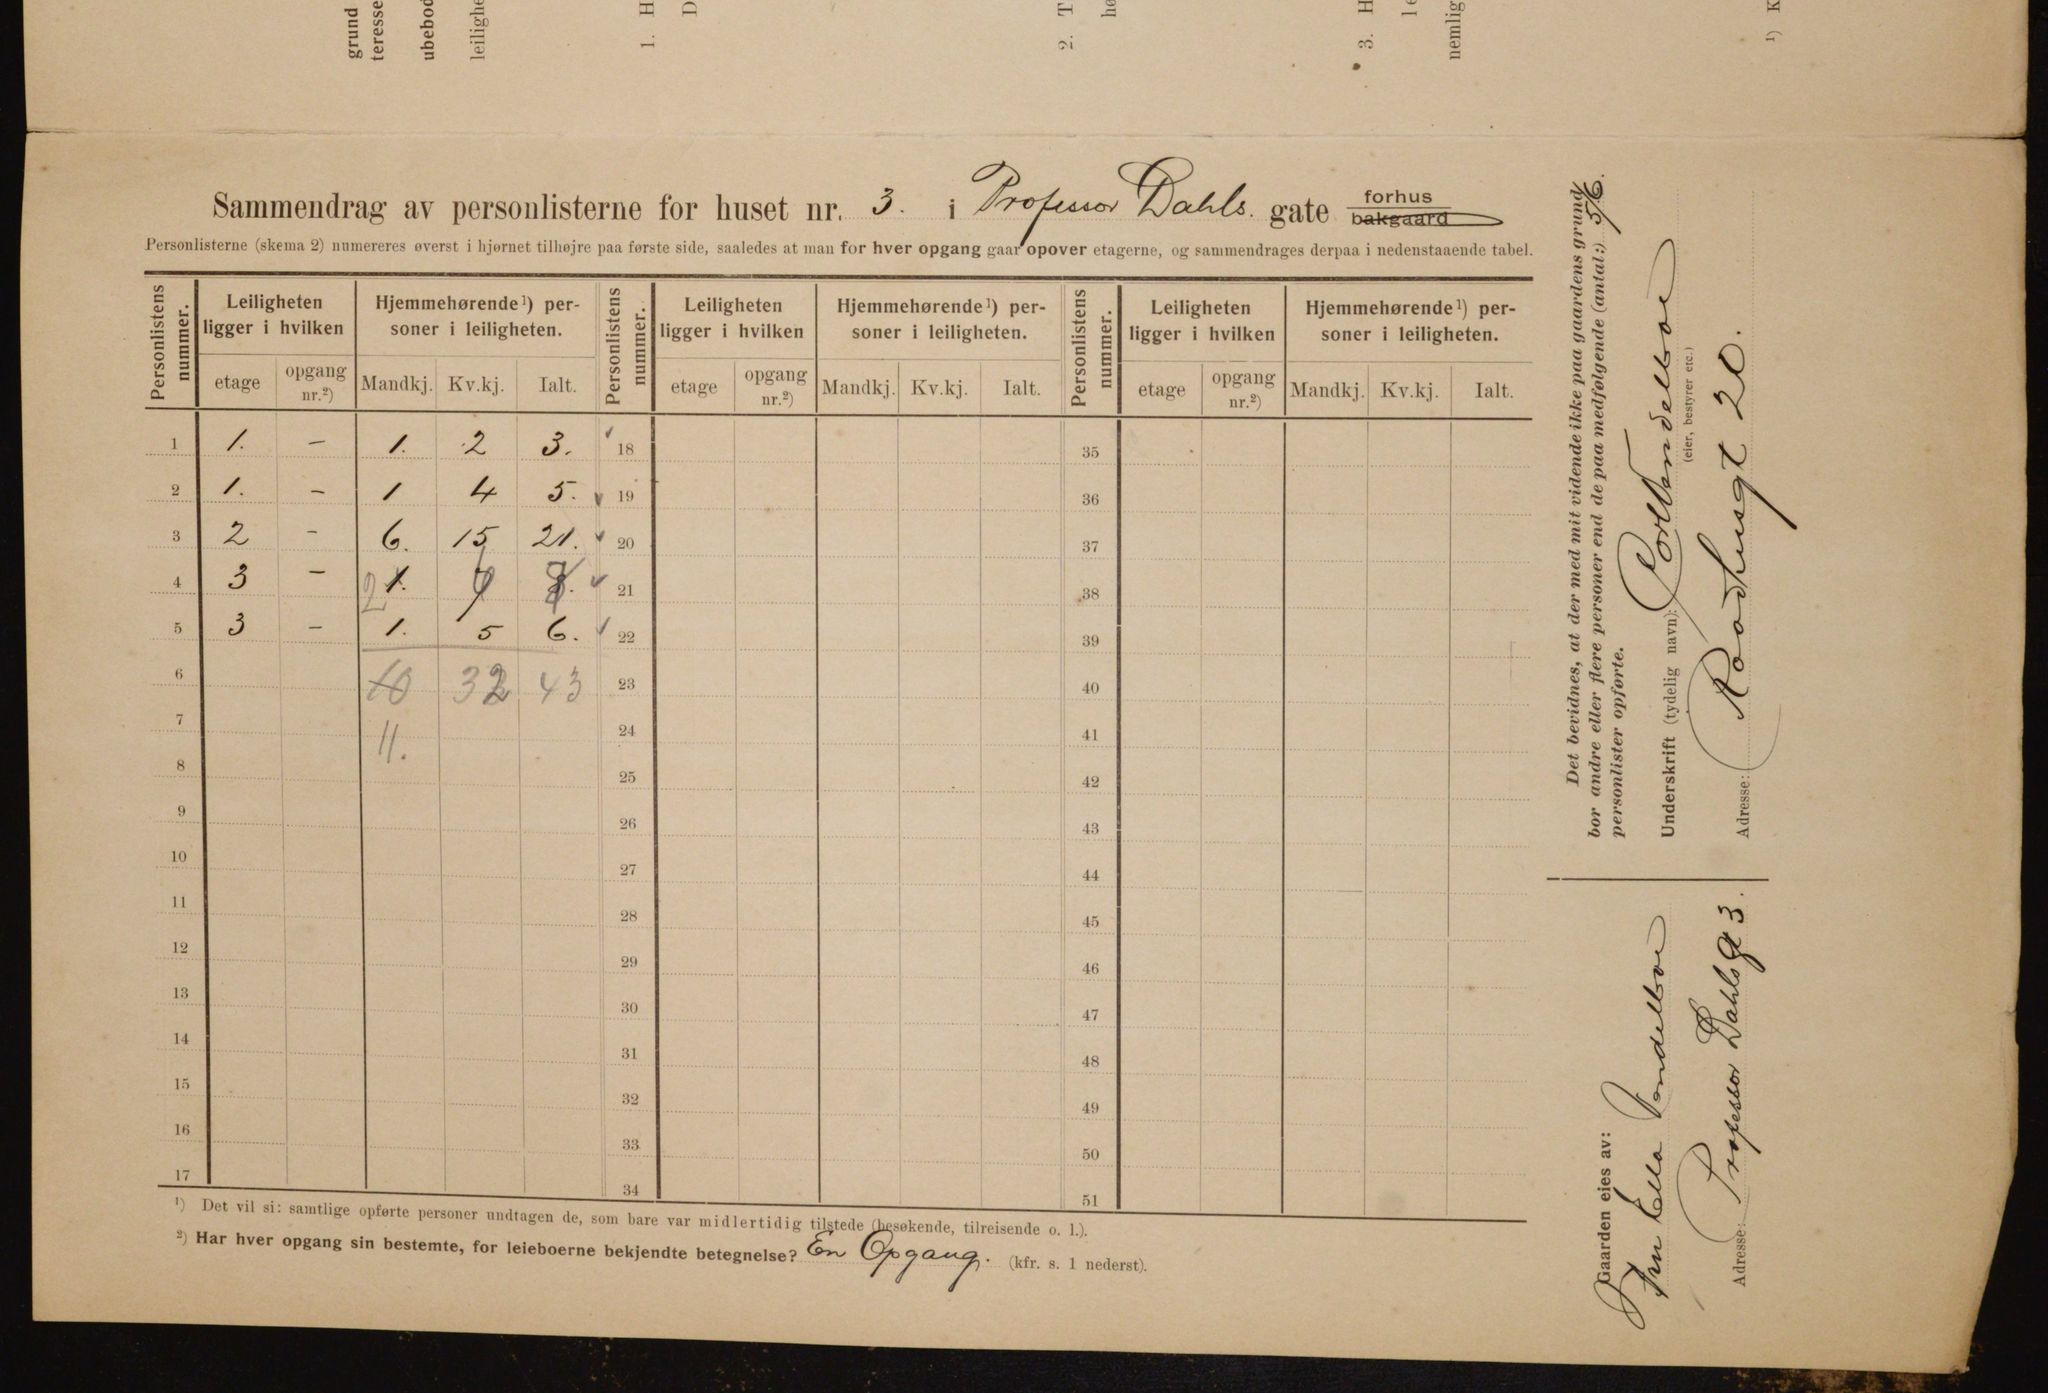 grund
teresse
ubebod
leilighe
1. H
D
2. T
hø
3. H
le
nemlig
¹) K
Sammendrag av personlisterne for huset nr. 3. i Professor Dahls. gate forhus bakgaard
Personlisterne (skema 2) numereres øverst i hjørnet tilhøjre paa første side, saaledes at man for hver opgang gaar opover etagerne, og sammendrages derpaa i nedenstaaende tabel.
Personlistens nummer. Leiligheten ligger i hvilken Hjemmehørende¹) personer i leiligheten. Personlistens nummer. Leiligheten ligger i hvilken Hjemmehørende¹) personer i leiligheten. Personlistens nummer. Leiligheten ligger i hvilken Hjemmehørende¹) personer i leiligheten.
etage opgang nr.²) Mandkj. Kv.kj. Ialt. etage opgang nr.²) Mandkj. Kv.kj. Ialt. etage opgang nr.²) Mandkj. Kv.kj. Ialt.
1 1. – 1. 2 3. ✓ 18 35
2 1. – 1 4 5. ✓ 19 36
3 2 – 6. 15 21. ✓ 20 37
4 3 – 2 1. ✓ 21 38
5 3 – 1. 5 6. ✓ 22 39
6 10 32 43 23 40
7 11. 24 41
8 25 42
9 26 43
10 27 44
11 28 45
12 29 46
13 30 47
14 31 48
15 32 49
16 33 50
17 34 51
¹) Det vil si: samtlige opførte personer undtagen de, som bare var midlertidig tilstede (besøkende, tilreisende o. l.).
²) Har hver opgang sin bestemte, for leieboerne bekjendte betegnelse? En Opgang. (kfr. s. 1 nederst).
Det bevidnes, at der med mit vidende ikke paa gaardens grund
bor andre eller flere personer end de paa medfølgende (antal:) 5/6.
personlister opførte.
Underskrift (tydelig navn):
(eier, bestyrer etc.)
Adresse: Raadhusgt 20.
Gaarden eies av:
Fru Ella
Adresse: Professor Dahlsgt 3.